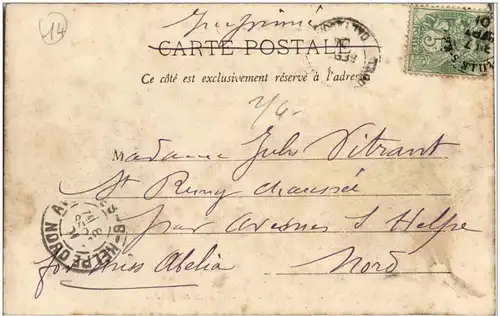 14
Imprimé
CARTE POSTALE
Ce côté est exclusivement réservé à l'adres
7/6-
M adame Jules Vitrant
St Remy Chaussée
par Avesnes s/ Helpe
for Miss Abelia Nord